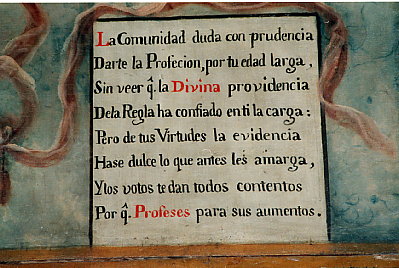 La Comunidad duda con prudencia
Darte la Profecion, por tu edad larga,
Sin veer q̃. la Divina providencia
Dela Regla ha confiado en ti la carga:
Pero de tus Virtudes la evidencia
Hase dulce lo que antes les amarga,
Y los votos te dan todos contentos
Por q̃. Profeses para sus aumentos.